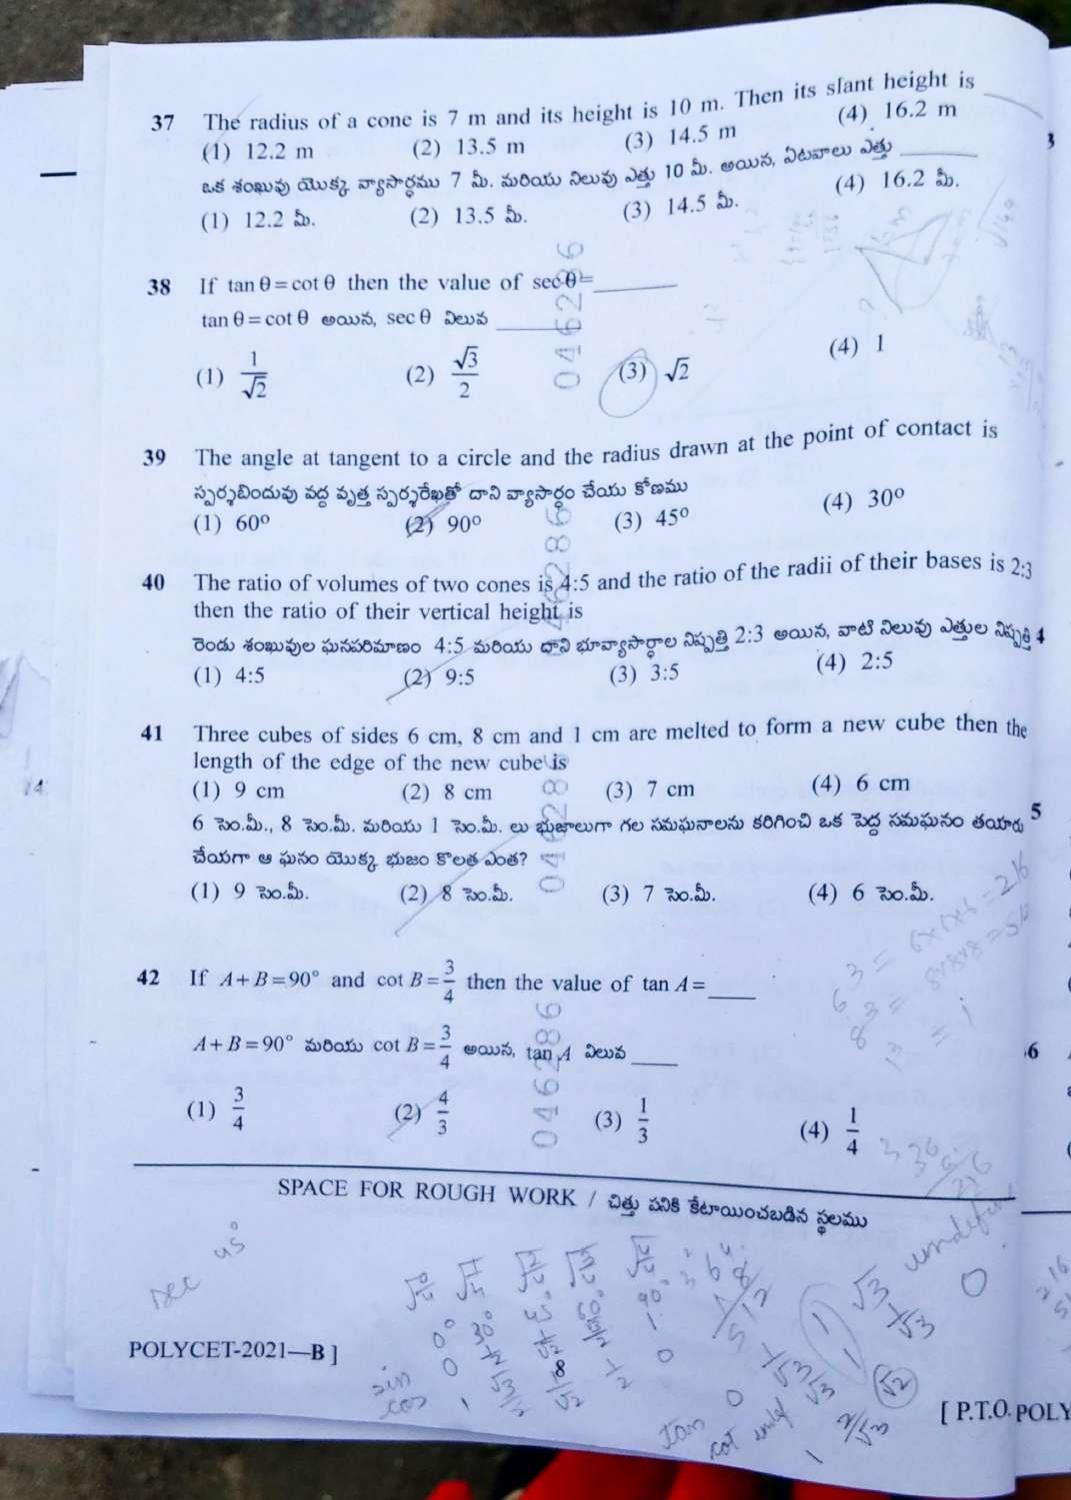 37 The radius of a cone is 7 m and its height is 10 m. Then its slant height is ____
(1) 12.2 m (2) 13.5 m (3) 14.5 m (4) 16.2 m
ఒక శంఖువు యొక్క వ్యాసార్థము 7 మీ. మరియు నిలువు ఎత్తు 10 మీ. అయిన, ఏటవాలు ఎత్తు ____
(1) 12.2 మీ. (2) 13.5 మీ. (3) 14.5 మీ. (4) 16.2 మీ.
38 If tan θ = cot θ then the value of sec θ = ____
tan θ = cot θ అయిన, sec θ విలువ ____
(1) 1/√2 (2) √3/2 (3) √2 (4) 1
39 The angle at tangent to a circle and the radius drawn at the point of contact is
స్పర్శబిందువు వద్ద వృత్త స్పర్శరేఖతో దాని వ్యాసార్థం చేయు కోణము
(1) 60° (2) 90° (3) 45° (4) 30°
40 The ratio of volumes of two cones is 4:5 and the ratio of the radii of their bases is 2:3
then the ratio of their vertical height is
రెండు శంఖువుల ఘనపరిమాణం 4:5 మరియు దాని భూవ్యాసార్థాల నిష్పత్తి 2:3 అయిన, వాటి నిలువు ఎత్తుల నిష్పత్తి 4
(1) 4:5 (2) 9:5 (3) 3:5 (4) 2:5
41 Three cubes of sides 6 cm, 8 cm and 1 cm are melted to form a new cube then the
length of the edge of the new cube is
(1) 9 cm (2) 8 cm (3) 7 cm (4) 6 cm
6 సెం.మీ., 8 సెం.మీ. మరియు 1 సెం.మీ. లు భుజాలుగా గల సమఘనాలను కరిగించి ఒక పెద్ద సమఘనం తయారు 5
చేయగా ఆ ఘనం యొక్క భుజం కొలత ఎంత?
(1) 9 సెం.మీ. (2) 8 సెం.మీ. (3) 7 సెం.మీ. (4) 6 సెం.మీ.
6³ = 6×6×6 = 216
8³ = 8×8×8 = 512
1³ = 1
42 If A + B = 90° and cot B = 3/4 then the value of tan A = ____
A + B = 90° మరియు cot B = 3/4 అయిన, tan A విలువ ____
6
(1) 3/4 (2) 4/3 (3) 1/3 (4) 1/4
046286
046286
046286
046286
SPACE FOR ROUGH WORK / చిత్తు పనికి కేటాయించబడిన స్థలము
sec 45°
0° 30° 90°
sin
cos
tan 0
cot
√3
1/√3
0
√2
2/√3
POLYCET-2021—B ] 8
[ P.T.O. POLY